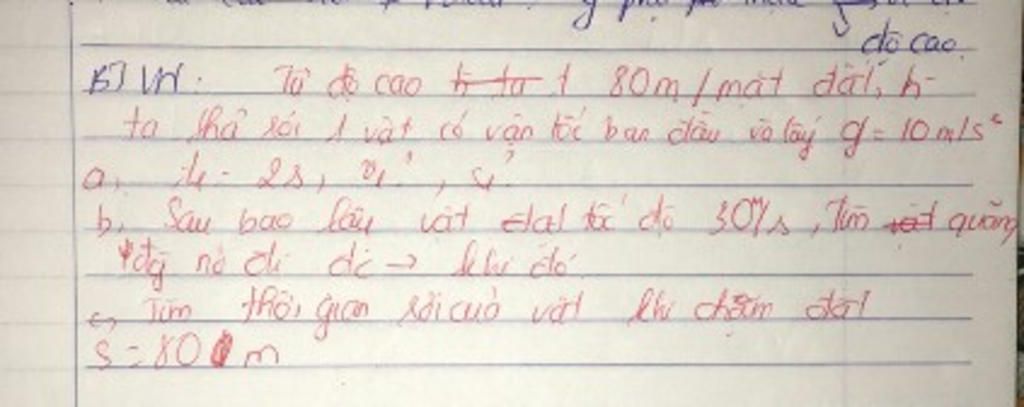 độ cao
VD: Từ độ cao h ta 1 80m/mặt đất, h
ta thả rơi 1 vật có vận tốc ban đầu và lấy g = 10m/s²
a, t1 = 2s, v1?, s1?
b, Sau bao lâu vật đạt tốc độ 30m/s, Tìm quãng
đg nó đi đc → khi đó
c, Tìm thời gian rơi cuả vật khi chạm đất
s = 80 m